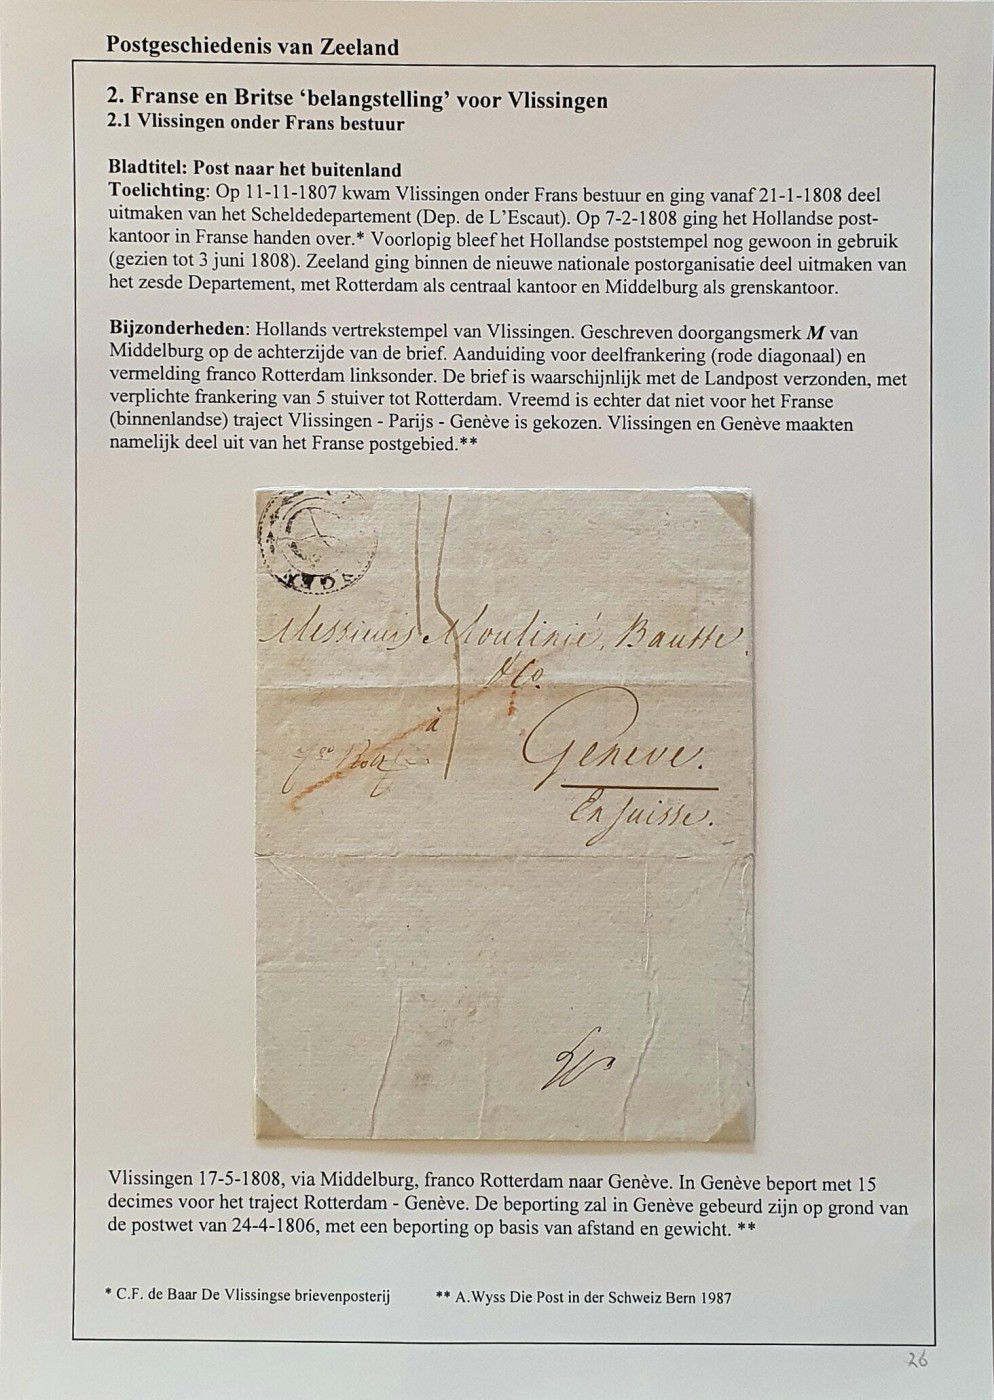 Postgeschiedenis van Zeeland
2. Franse en Britse ‘belangstelling’ voor Vlissingen
2.1 Vlissingen onder Frans bestuur
Bladtitel: Post naar het buitenland
Toelichting: Op 11-11-1807 kwam Vlissingen onder Frans bestuur en ging vanaf 21-1-1808 deel
uitmaken van het Scheldedepartement (Dep. de L’Escaut). Op 7-2-1808 ging het Hollandse post-
kantoor in Franse handen over.* Voorlopig bleef het Hollandse poststempel nog gewoon in gebruik
(gezien tot 3 juni 1808). Zeeland ging binnen de nieuwe nationale postorganisatie deel uitmaken van
het zesde Departement, met Rotterdam als centraal kantoor en Middelburg als grenskantoor.
Bijzonderheden: Hollands vertrekstempel van Vlissingen. Geschreven doorgangsmerk M van
Middelburg op de achterzijde van de brief. Aanduiding voor deelfrankering (rode diagonaal) en
vermelding franco Rotterdam linksonder. De brief is waarschijnlijk met de Landpost verzonden, met
verplichte frankering van 5 stuiver tot Rotterdam. Vreemd is echter dat niet voor het Franse
(binnenlandse) traject Vlissingen - Parijs - Genève is gekozen. Vlissingen en Genève maakten
namelijk deel uit van het Franse postgebied.**
Messieurs Moulinié, Bautte
& Co.
à
Geneve.
En Suisse.
Vlissingen 17-5-1808, via Middelburg, franco Rotterdam naar Genève. In Genève beport met 15
decimes voor het traject Rotterdam - Genève. De beporting zal in Genève gebeurd zijn op grond van
de postwet van 24-4-1806, met een beporting op basis van afstand en gewicht. **
* C.F. de Baar De Vlissingse brievenposterij
** A.Wyss Die Post in der Schweiz Bern 1987
26